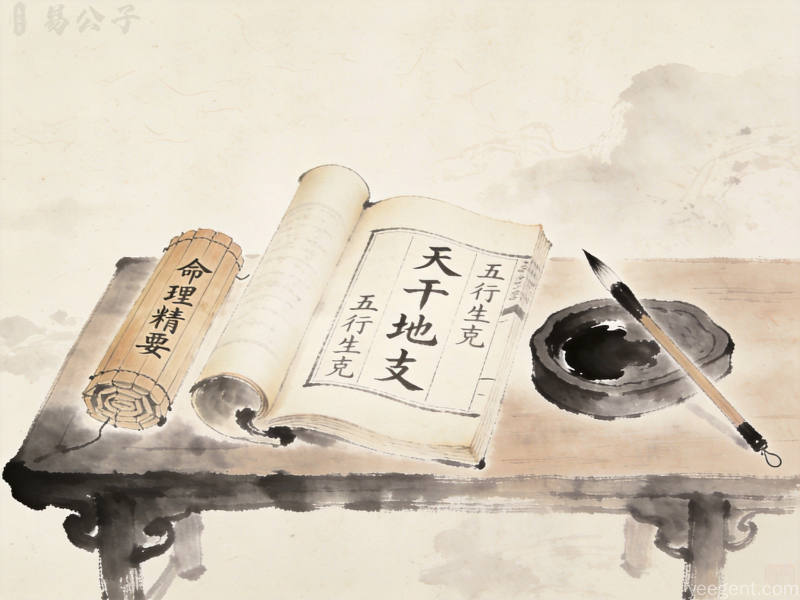 易公子
命理精要
五行生克
天干地支
五行生克
yeegent.com